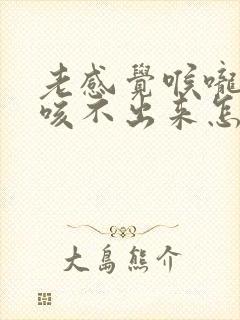 老感覺喉嚨
咳不出来怎
大島熊介